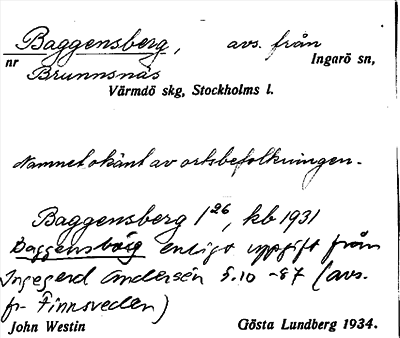 Baggensberg, avs. från
nr Brunnsnäs Ingarö sn,
Värmdö skg, Stockholms l.
Namnet okänt av ortsbefolkningen.
Baggensberg 1/26, kb 1931
Baggensborg enligt uppgift från
Ingegerd Andersén 5.10 -87 (avs.
fr. Finnsveden)
John Westin Gösta Lundberg 1934.